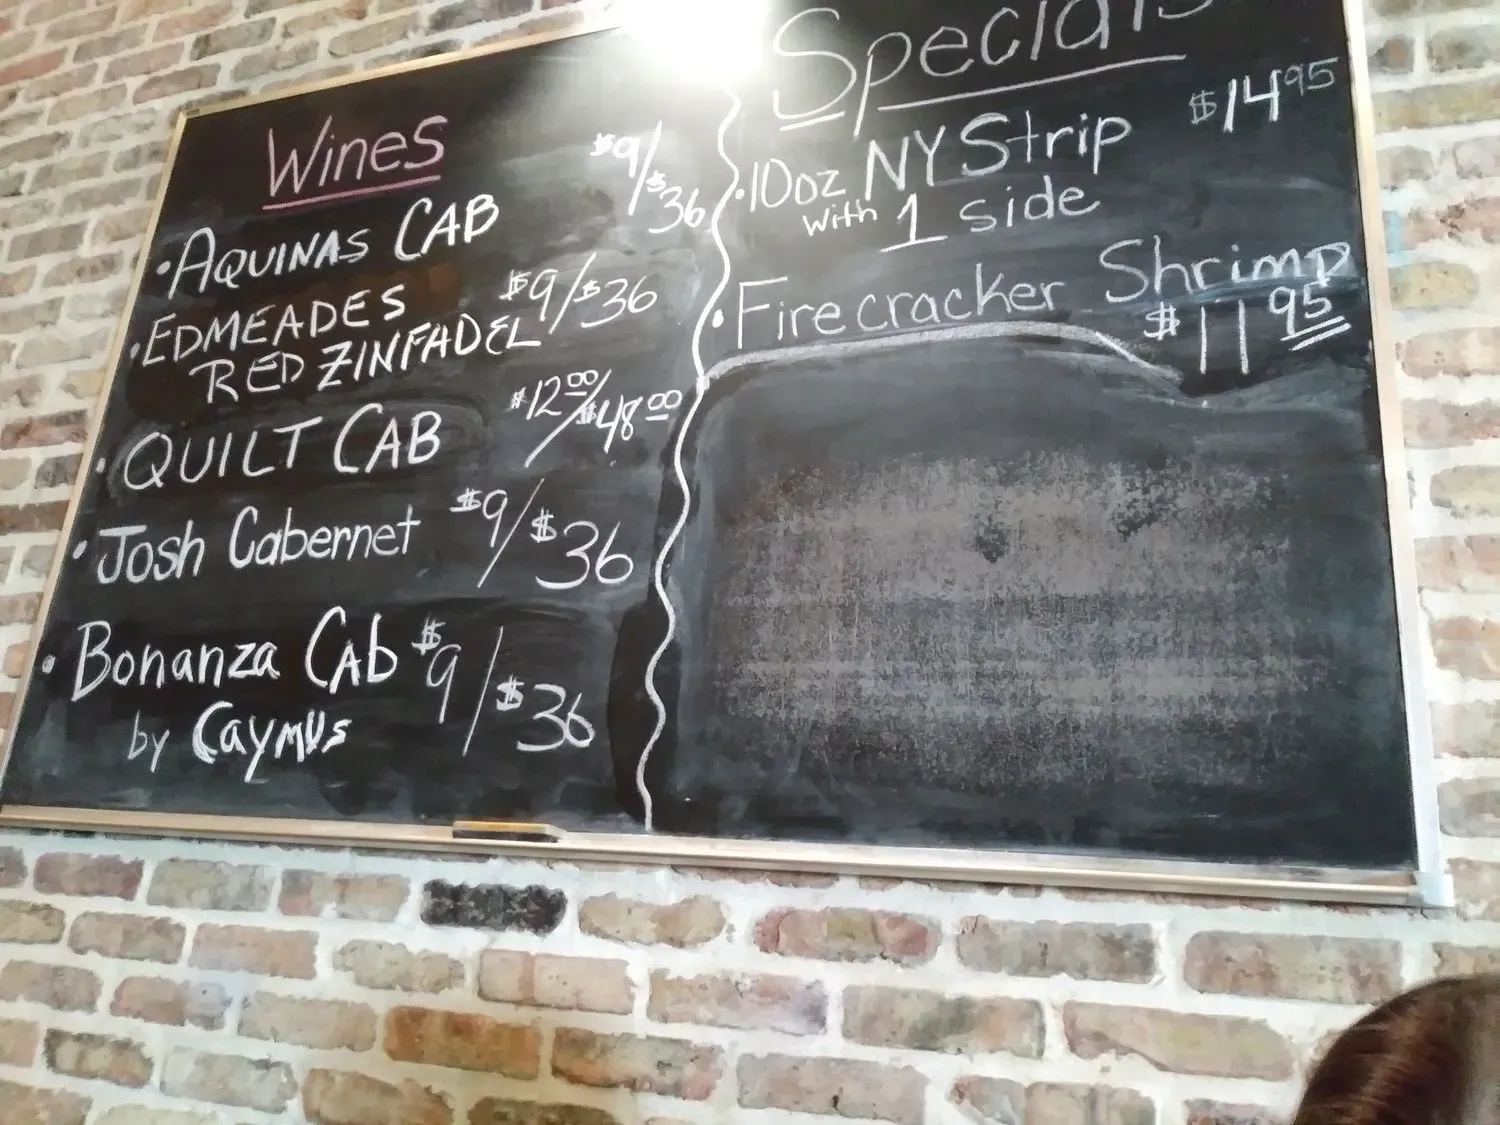 Wines
• AQUINAS CAB $9/$36
• EDMEADES $9/$36
RED ZINFADEL
• QUILT CAB $12.00/$48.00
• Josh Cabernet $9/$36
• Bonanza CAb $9/$36
by CAYMUS
Specials
• 10oz NY Strip $14.95
with 1 side
• Firecracker Shrimp
$11.95